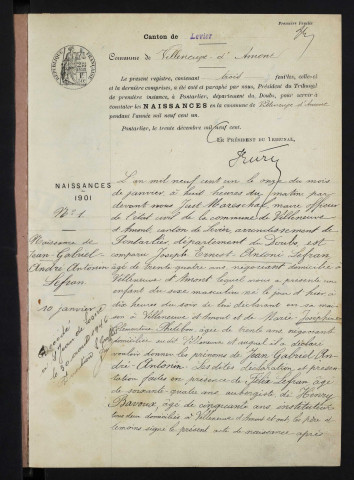 Première Feuille
Canton de Levier
RÉPUBLIQUE FRANÇAISE
Commune de Villeneuve d'Amont
Le présent registre, contenant trois feuilles, celle-ci
et la dernière comprises, a été coté et paraphé par nous, Président du Tribunal
de première instance, à Pontarlier, département du Doubs, pour servir à
constater les NAISSANCES en la commune de Villeneuve d'Amont
pendant l'année mil neuf cent un.
Pontarlier, le trente décembre mil neuf cent.
LE PRÉSIDENT DU TRIBUNAL,
NAISSANCES
1901
N° 1
Naissance de
Jean Gabriel
André Antonin
Lefran
10 janvier
L'an mil neuf cent un le onze du mois
de janvier à huit heures du matin par
devant nous Just Maréchal, maire officier
de l'état civil de la commune de Villeneuve
d'Amont, canton de Levier, arrondissement de
Pontarlier département du Doubs, est
comparu Joseph Ernest Lefran,
âgé de trente quatre ans, négociant domicilié à
Villeneuve d'Amont lequel nous a présenté un
enfant du sexe masculin né le jour d'hier à
dix heures du soir de lui déclarant en sa mai-
son à Villeneuve d'Amont et de Marie Joséphine
âgée de trente ans
domiciliée au dit Villeneuve et auquel il a déclaré
vouloir donner les prénoms de Jean Gabriel An-
dré Antonin. Les dites déclaration et présen-
tation faites en présence de Félix Lefran, âgé
de soixante quatre ans, aubergiste et Henry
Bavoux, âgé de cinquante ans instituteur
tous deux domiciliés à Villeneuve d'Amont et ont le père et
témoins signé le présent acte de naissance après